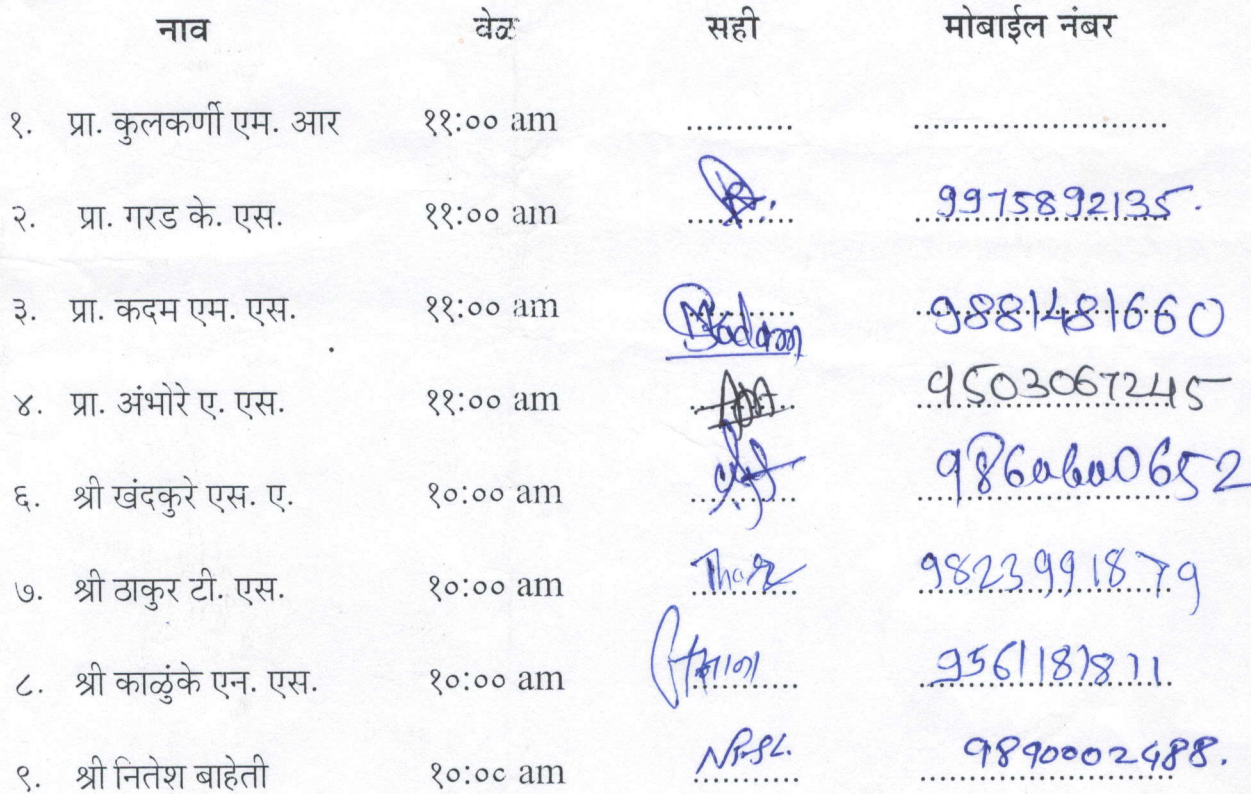 नाव वेळ सही मोबाईल नंबर
१. प्रा. कुलकर्णी एम. आर ११:०० am .......... ........................
२. प्रा. गरड के. एस. ११:०० am 9975892135.
३. प्रा. कदम एम. एस. ११:०० am 9881481660
४. प्रा. अंभोरे ए. एस. ११:०० am 9503067245
६. श्री खंदकुरे एस. ए. १०:०० am
७. श्री ठाकुर टी. एस. १०:०० am 9823991879
८. श्री काळुंके एन. एस. १०:०० am 9561181811
९. श्री नितेश बाहेती १०:०० am 9890002488.